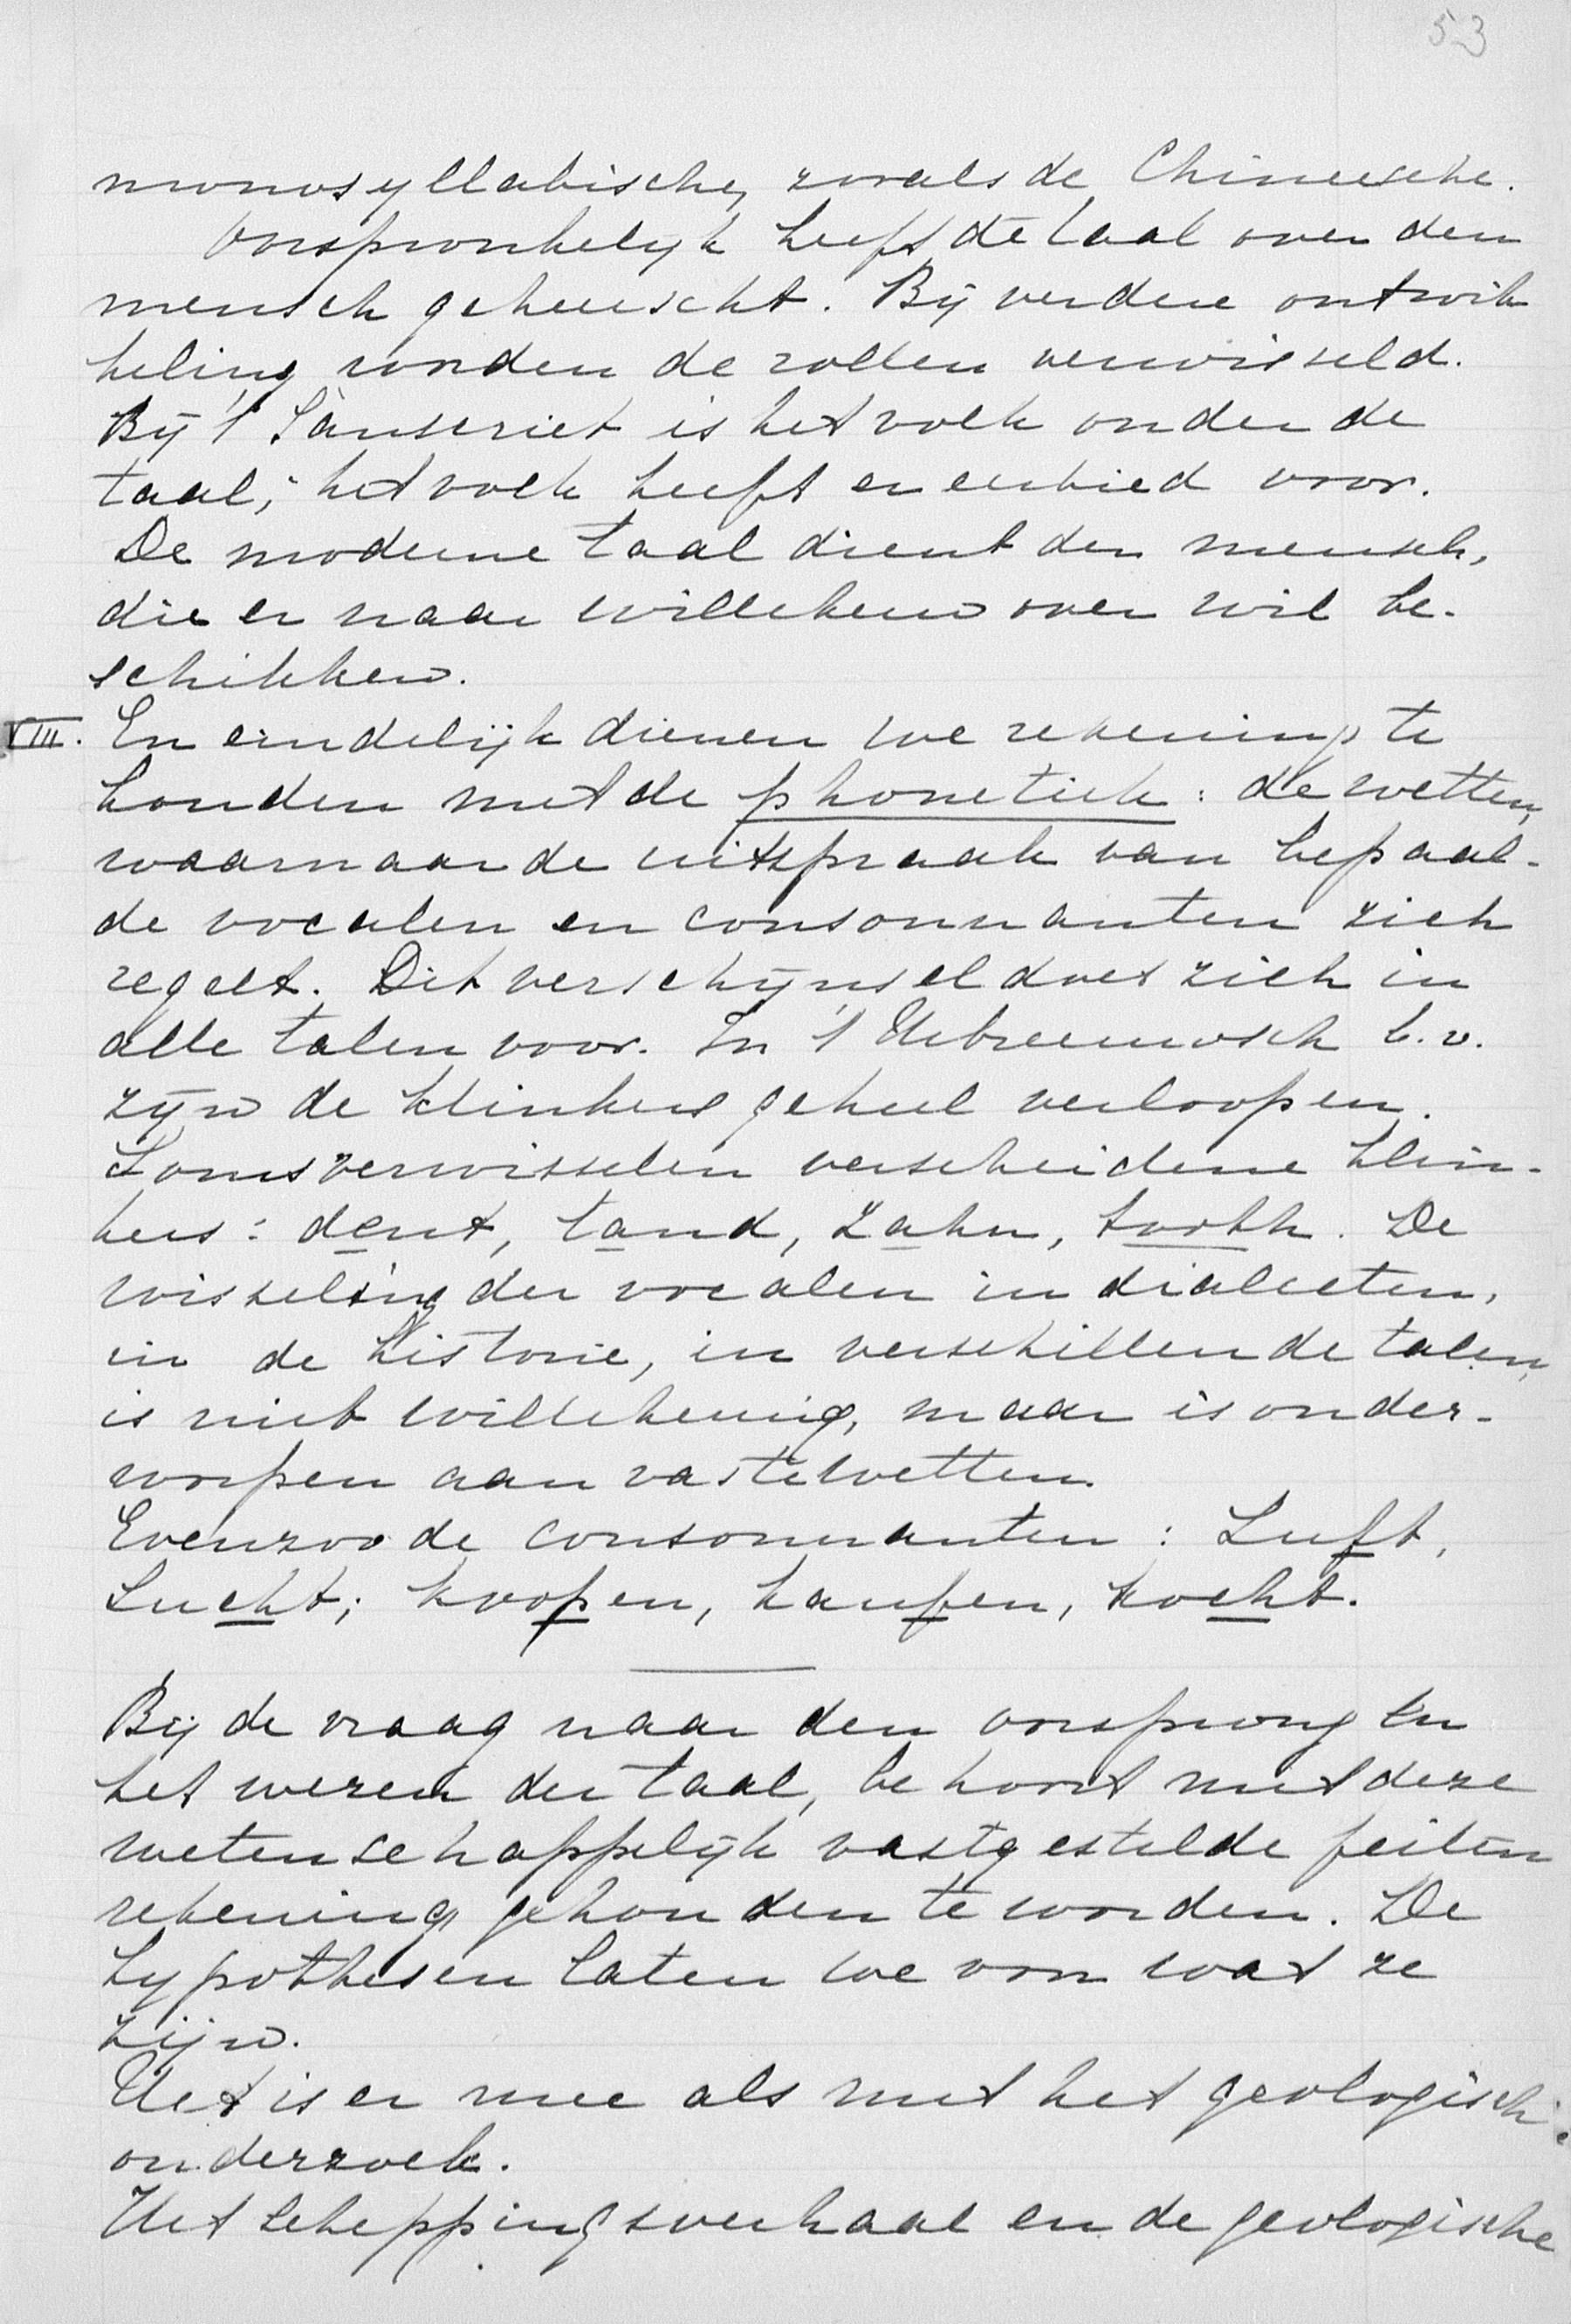 53
monosyllabische, zooals de Chineesche.
Oorspronkelijk heeft de taal over den
mensch geheerscht. Bij verdere ontwik
keling worden de rollen verwisseld.
Bij 't Sanscriet is het volk onder de
taal; het volk heeft er eerbied voor.
De moderne taal dient den mensch,
die er naar willekeur over wil be-
schikken.
VIII. En eindelijk dienen we rekening te
houden met de phonetiek: de wetten,
waarnaar de uitspraak van bepaal-
de vocalen en consonnanten zich
regelt. Dit verschijnsel doet zich in
alle talen voor. In 't Hebreeuwsch b.v.
zijn de klinkers geheel verloopen.
Soms verwisselen verscheidene klin-
kers: dent, tand, Zahn, tooth. De
wisseling der vocalen in dialecten,
in de historie, in verschillende talen,
is niet willekeurig, maar is onder-
worpen aan vaste wetten.
Evenzoo de consonnanten: Luft,
Lucht; koopen, kaufen, kocht.
Bij de vraag naar den oorsprong en
het wezen der taal, behoort met deze
wetenschappelijk vastgestelde feiten
rekening gehouden te worden. De
hypothesen laten we voor wat ze
zijn.
Het is er mee als met het geologisch
onderzoek.
Het scheppingsverhaal en de geologische